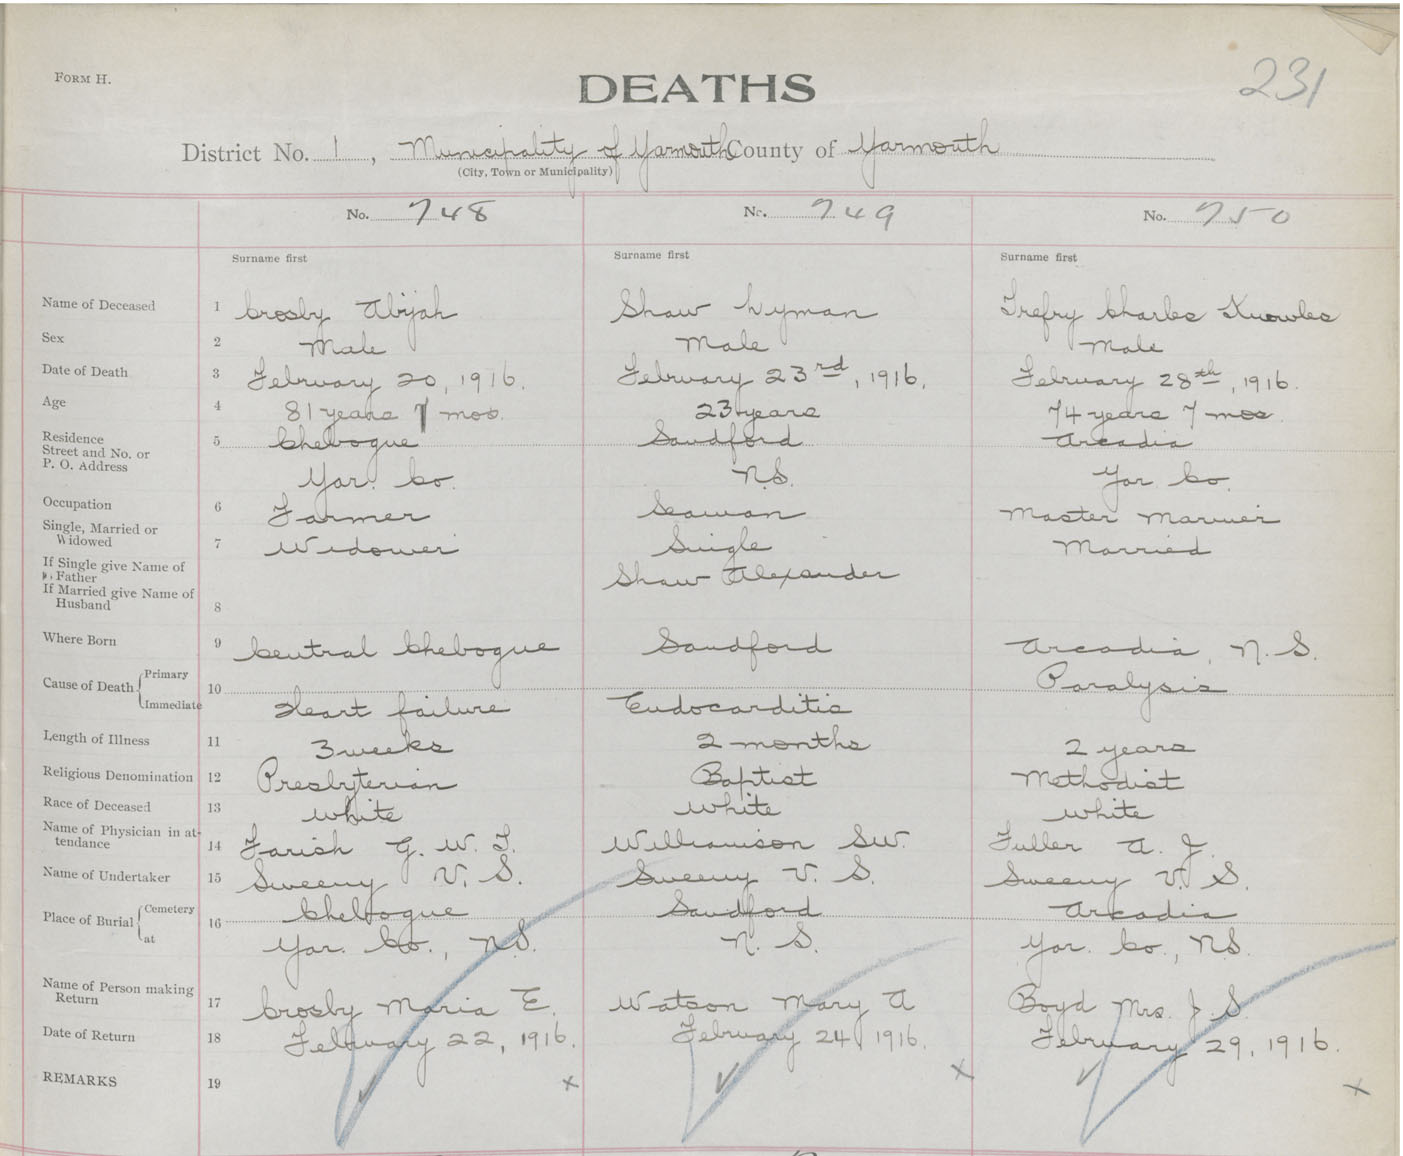 FORM H.
DEATHS
231
District No. 1, Municipality of Yarmouth County of Yarmouth
(City, Town or Municipality)
No. 748 No. 749 No. 750
Surname first Surname first Surname first
Name of Deceased 1 Crosby Abijah Shaw Lyman Trefry Charles Knowles
Sex 2 Male Male Male
Date of Death 3 February 20, 1916. February 23rd, 1916. February 28th, 1916.
Age 4 81 years 7 mos. 23 years 74 years 7 mos
Residence 5 Chebogue Sandford Arcadia
Street and No. or
P. O. Address Yar. Co. N.S. Yar. Co.
Occupation 6 Farmer Seaman Master Mariner
Single, Married or
Widowed 7 Widower Single Married
If Single give Name of
Father Shaw Alexander
If Married give Name of
Husband 8
Where Born 9 Central Chebogue Sandford Arcadia, N. S.
Cause of Death { Primary 10 Paralysis
Immediate Heart failure Endocarditis
Length of Illness 11 3 weeks 2 months 2 years
Religious Denomination 12 Presbyterian Baptist Methodist
Race of Deceased 13 white white white
Name of Physician in at-
tendance 14 Farish G. W. T. Williamson SW. Fuller A. J.
Name of Undertaker 15 Sweeny V. S. Sweeny V. S. Sweeny V. S.
Place of Burial { Cemetery 16 Chebogue Sandford Arcadia
at Yar. Co., N.S. N. S. Yar. Co., N.S.
Name of Person making
Return 17 Crosby Maria E. Watson Mary A Boyd Mrs. J. S.
Date of Return 18 February 22, 1916. February 24, 1916. February 29, 1916.
REMARKS 19 x x x